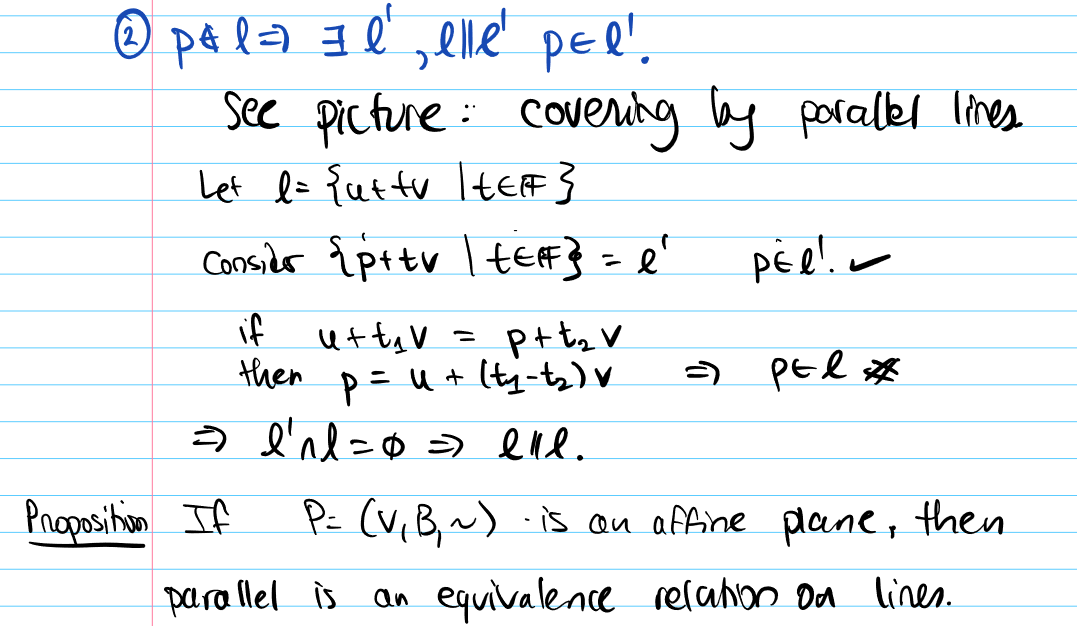 ② p∉l ⇒ ∃ l', l∥l' p∈l'.
See picture: covering by parallel lines.
Let l = {u+tv | t∈𝔽}
Consider {p+tv | t∈𝔽} = l' p∈l'. ✓
if u+t₁v = p+t₂v
then p = u + (t₁-t₂)v ⇒ p∈l ※
⇒ l'∩l = ∅ ⇒ l∥l.
Proposition If P= (V, B, ~) is an affine plane, then
parallel is an equivalence relation on lines.